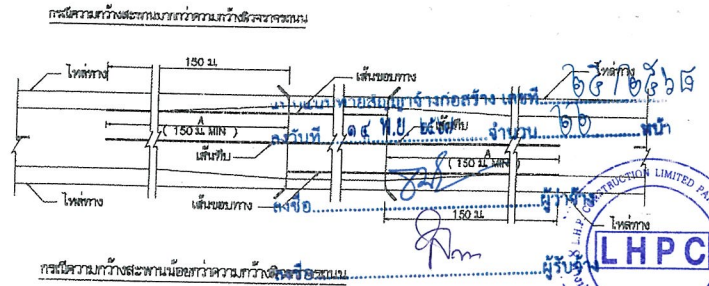 กรณีความกว้างสะพานมากกว่าความกว้างผิวจราจรถนน
150 ม.
ไหล่ทาง
เส้นขอบทาง
ไหล่ทาง
แนบท้ายสัญญาจ้างก่อสร้าง เลขที่
A
( 150 ม. MIN )
ลงวันที่ ๑๔ พ.ย. ๒๕๖๗ จำนวน ๒๒ หน้า
เส้นทึบ
A
( 150 ม. MIN )
ไหล่ทาง
เส้นขอบทาง
ลงชื่อ ผู้ว่าจ้าง
150 ม.
ไหล่ทาง
L.H.P. CONSTRUCTION LIMITED
LHPC
กรณีความกว้างสะพานน้อยกว่าความกว้าง
ลงชื่อ ผู้รับจ้าง